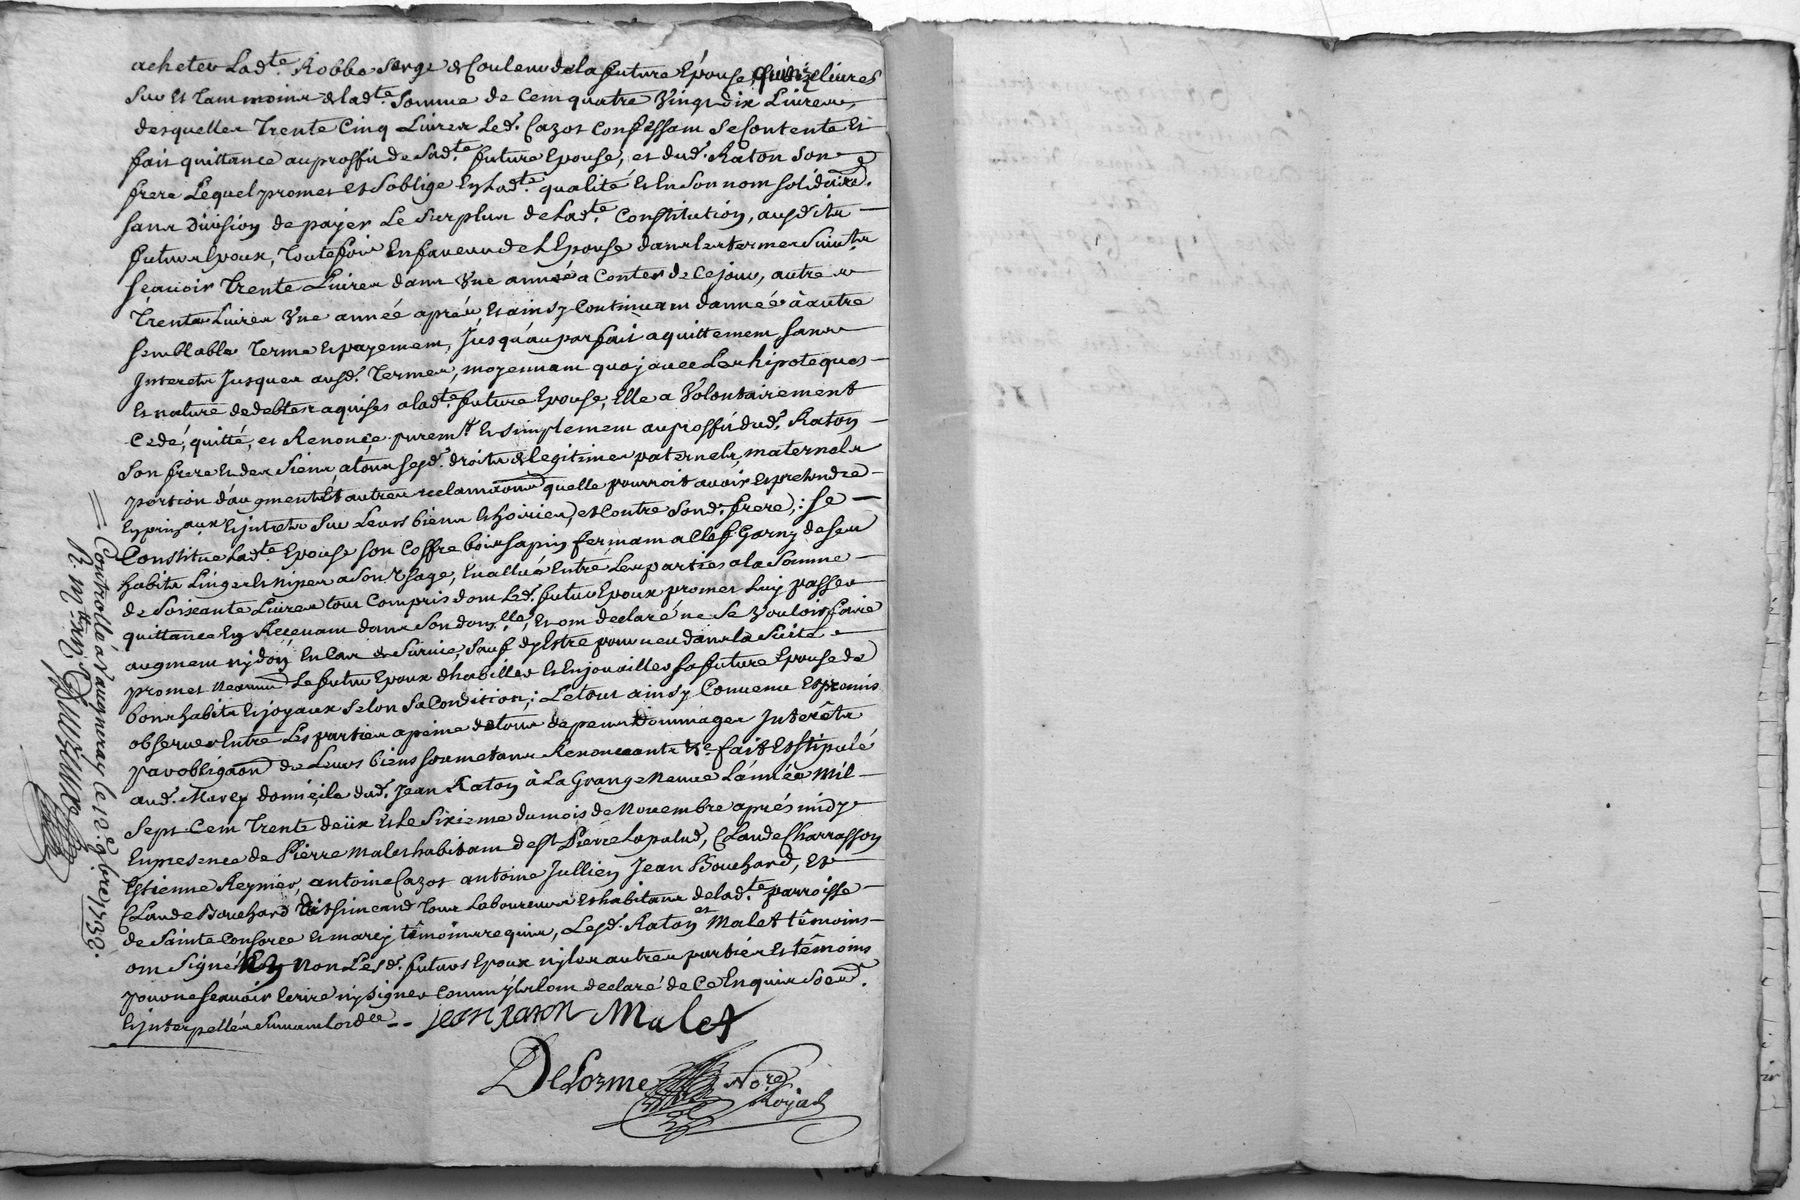 acheter Lad.te Robbe Serge & Couleur de la future Epouse, quinze livres
Sur Et Tammoins de lad.te Somme de Cent quatre Vingt dix Livres,
desquelles Trente Cinq Livres Led. Cazot Confessam Se Contente Et
fait quittance au proffit de Sad.te future Epouse, et dud. Raton Son
frere Lequel promet Et Soblige En Lad.te qualité Et En Son nom Solidaire.
Sans Division de payer Le Surplus de Lad.te Constitution, ausdits
futurs Epoux, Toutefois En faveur de L'Epouse dans les termes Suiv.ts
Scauoir Trente Livres dans Vne année a Conter de Ce jour, autres
Trente Livres Vne année aprés, Et ainsy Continuam dannée à autre
Semblable Terme Et payement, Jusqu'au parfait aquittement Sans
Interets Jusques ausd. Termes, moyennam quoj auec Les hipoteques
Et nature de debtes aquises a lad.te future Epouse, Elle a Volontairement
Cedé, quitté, et Renoncé purem.t Et Simplement au proffit dud. Raton
Son frere Et des Siens a tous Sesd. droits & legitimes paternels, maternels
portion d'augment Et autres reclamaons quelle pourroit auoir Et pretendre
En prinpaux Et Jnterets Sur Leurs biens Et hoiries, et Contre Sond. frere; Se
Constitue Lad.te Epouse Son Coffre bois Sapin fermam a Clef Garny de Ses
habits Linges Et nipes a Son Vsage, Eualué Entre Les parties a la Somme
de Soixante Livres tout Compris dont Led. futur Epoux promet Luy passer
quittance En Receuam dans Son domlle, Et om declaré ne Se Vouloir faire
augment ny don En Cas de Suruie, Sauf dy Estre pourueu dans la Suite
promet Neanm. Le futur Epoux d'habiller Et Enjouailler Sa future Epouse de
bons habits Et joyaux Selon Sa Condition; Le tout ainsy Conuenu Et promis
obseruer Entre Les parties a peine de tous depens Dommages Interêts
par obligaon de Leurs biens Soumetans Renonceants &c. fait Et Stipulé
aud. Marcy domicile dud. Jean Raton à La Grange Neuue L'année Mil
Sept Cent Trente deüx Et Le Sixieme du mois de Nouembre aprés midy
En presence de Pierre Malet habitam de St Pierre Lapalud, Claude Charrasson
Estienne Reynier, antoine Cazot antoine Jullien Jean Bouchard, Et
Claude Bouchard dit Simeand Tous Laboureurs Et habitans de lad.te parroisse
de Sainte Consorce Et marcy témoins requis, Lesd. Raton et Malet têmoins
om Signé Et Non Lesd. futurs Epoux ny les autres parties Et têmoins
pour ne Scauoir Ecrire ny Signer Comm' ils om declaré de Ce Enquis
Et Jnterpellés Suiuam lordce --
jean raton Malet
Delorme Nore
Royal
= Controllé à Vaugneray le 12e 9bre 1732.